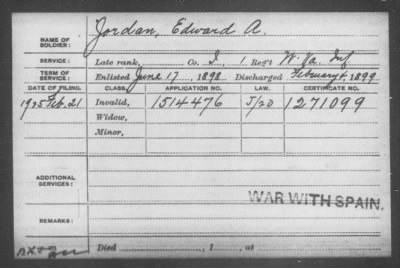 NAME OF SOLDIER: Jordan, Edward A.
SERVICE: Late rank, Co. I, 1 Reg't W. Va. Inf
TERM OF SERVICE: Enlisted June 17, 1898. Discharged February 4, 1899
DATE OF FILING. CLASS. APPLICATION NO. LAW. CERTIFICATE NO.
1925 Feb. 21 Invalid, 1514476 J/20 1271099
Widow,
Minor,
ADDITIONAL SERVICES:
WAR WITH SPAIN.
REMARKS:
Died , 1 , at